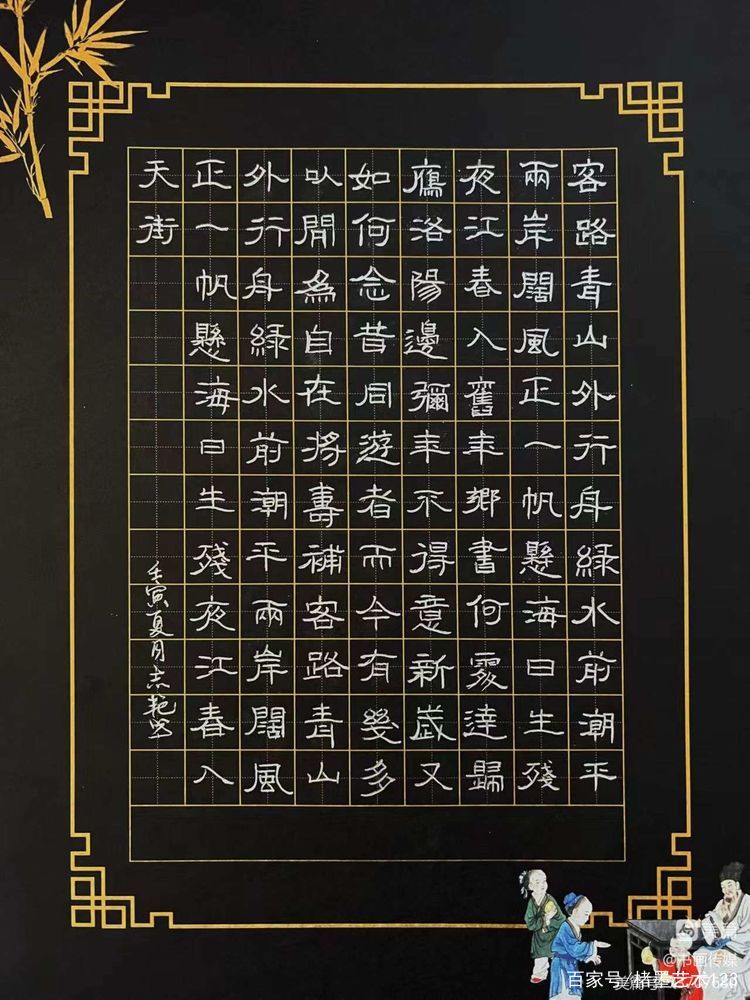 客路青山外行舟綠水前潮平
兩岸闊風正一帆懸海日生殘
夜江春入舊年鄉書何處達歸
鴈洛陽邊彌年不得意新歲又
如何念昔同遊者而今有幾多
以閒為自在將壽補客路青山
外行舟綠水前潮平兩岸闊風
正一帆懸海日生殘夜江春入
天街
壬寅夏月志艳书
@书画传媒
百家号/楮墨艺术123